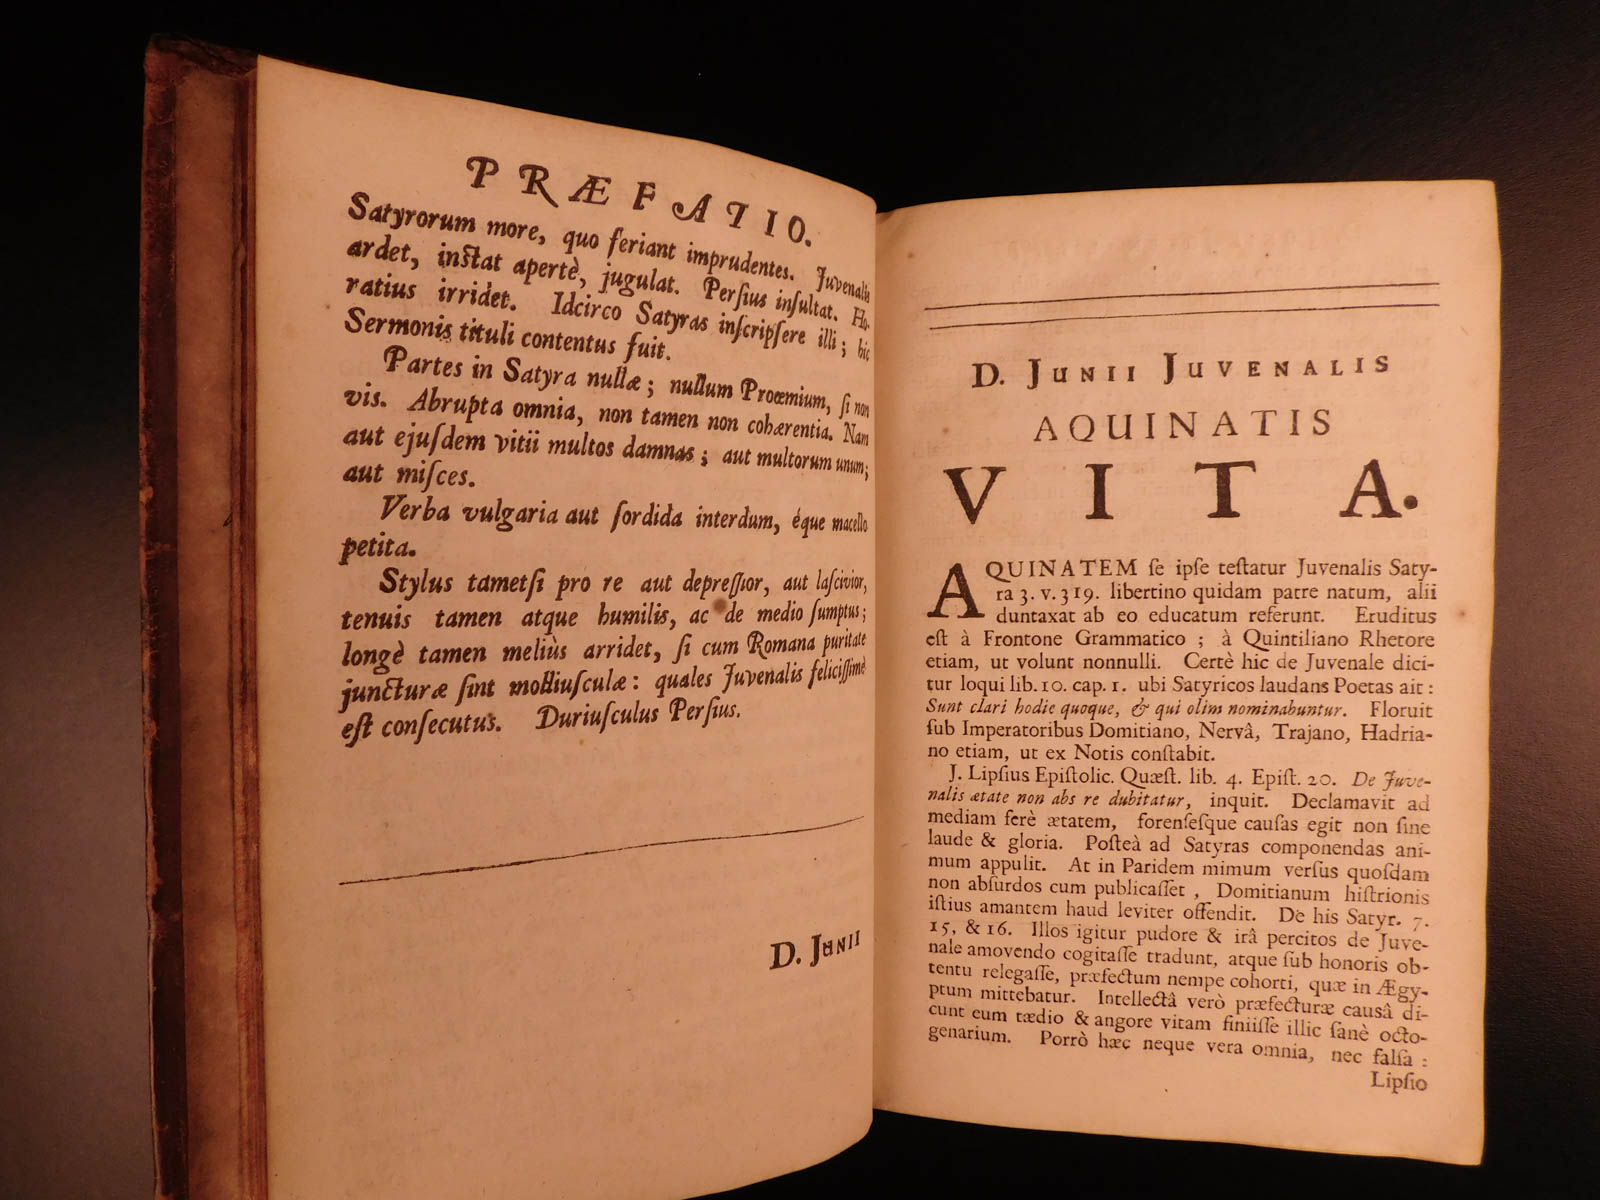 PRÆFATIO.
Satyrorum more, quo feriant imprudentes. Juvenalis
ardet, instat apertè, jugulat. Persius insultat. Ho-
ratius irridet. Idcirco Satyras inscripsere illi; hic
Sermonis tituli contentus fuit.
Partes in Satyra nullæ; nullum Proœmium, si non
vis. Abrupta omnia, non tamen non cohærentia. Nam
aut ejusdem vitii multos damnas; aut multorum unum;
aut misces.
Verba vulgaria aut sordida interdum, éque macello
petita.
Stylus tametsi pro re aut depressior, aut lascivior,
tenuis tamen atque humilis, ac de medio sumptus;
longè tamen meliùs arridet, si cum Romana puritate
juncturæ sint molliusculæ: quales Juvenalis felicissimè
est consecutus. Duriusculus Persius.
D. JUNII
D. JUNII JUVENALIS
AQUINATIS
VITA.
AQUINATEM se ipse testatur Juvenalis Saty-
ra 3. v. 319. libertino quidam patre natum, alii
duntaxat ab eo educatum referunt. Eruditus
est à Frontone Grammatico; à Quintiliano Rhetore
etiam, ut volunt nonnulli. Certè hic de Juvenale dici-
tur loqui lib. 10. cap. 1. ubi Satyricos laudans Poetas ait:
Sunt clari hodie quoque, & qui olim nominabuntur. Floruit
sub Imperatoribus Domitiano, Nervâ, Trajano, Hadria-
no etiam, ut ex Notis constabit.
J. Lipsius Epistolic. Quæst. lib. 4. Epist. 20. De Juve-
nalis ætate non abs re dubitatur, inquit. Declamavit ad
mediam ferè ætatem, forensesque causas egit non sine
laude & gloria. Posteà ad Satyras componendas ani-
mum appulit. At in Paridem mimum versus quosdam
non absurdos cum publicasset, Domitianum histrionis
istius amantem haud leviter offendit. De his Satyr. 7.
15, & 16. Illos igitur pudore & irâ percitos de Juve-
nale amovendo cogitasse tradunt, atque sub honoris ob-
tentu relegasse, præfectum nempe cohorti, quæ in Ægy-
ptum mittebatur. Intellectâ verò præfecturæ causâ di-
cunt eum tædio & angore vitam finiisse illic sanè octo-
genarium. Porrò hæc neque vera omnia, nec falsa:
Lipsio